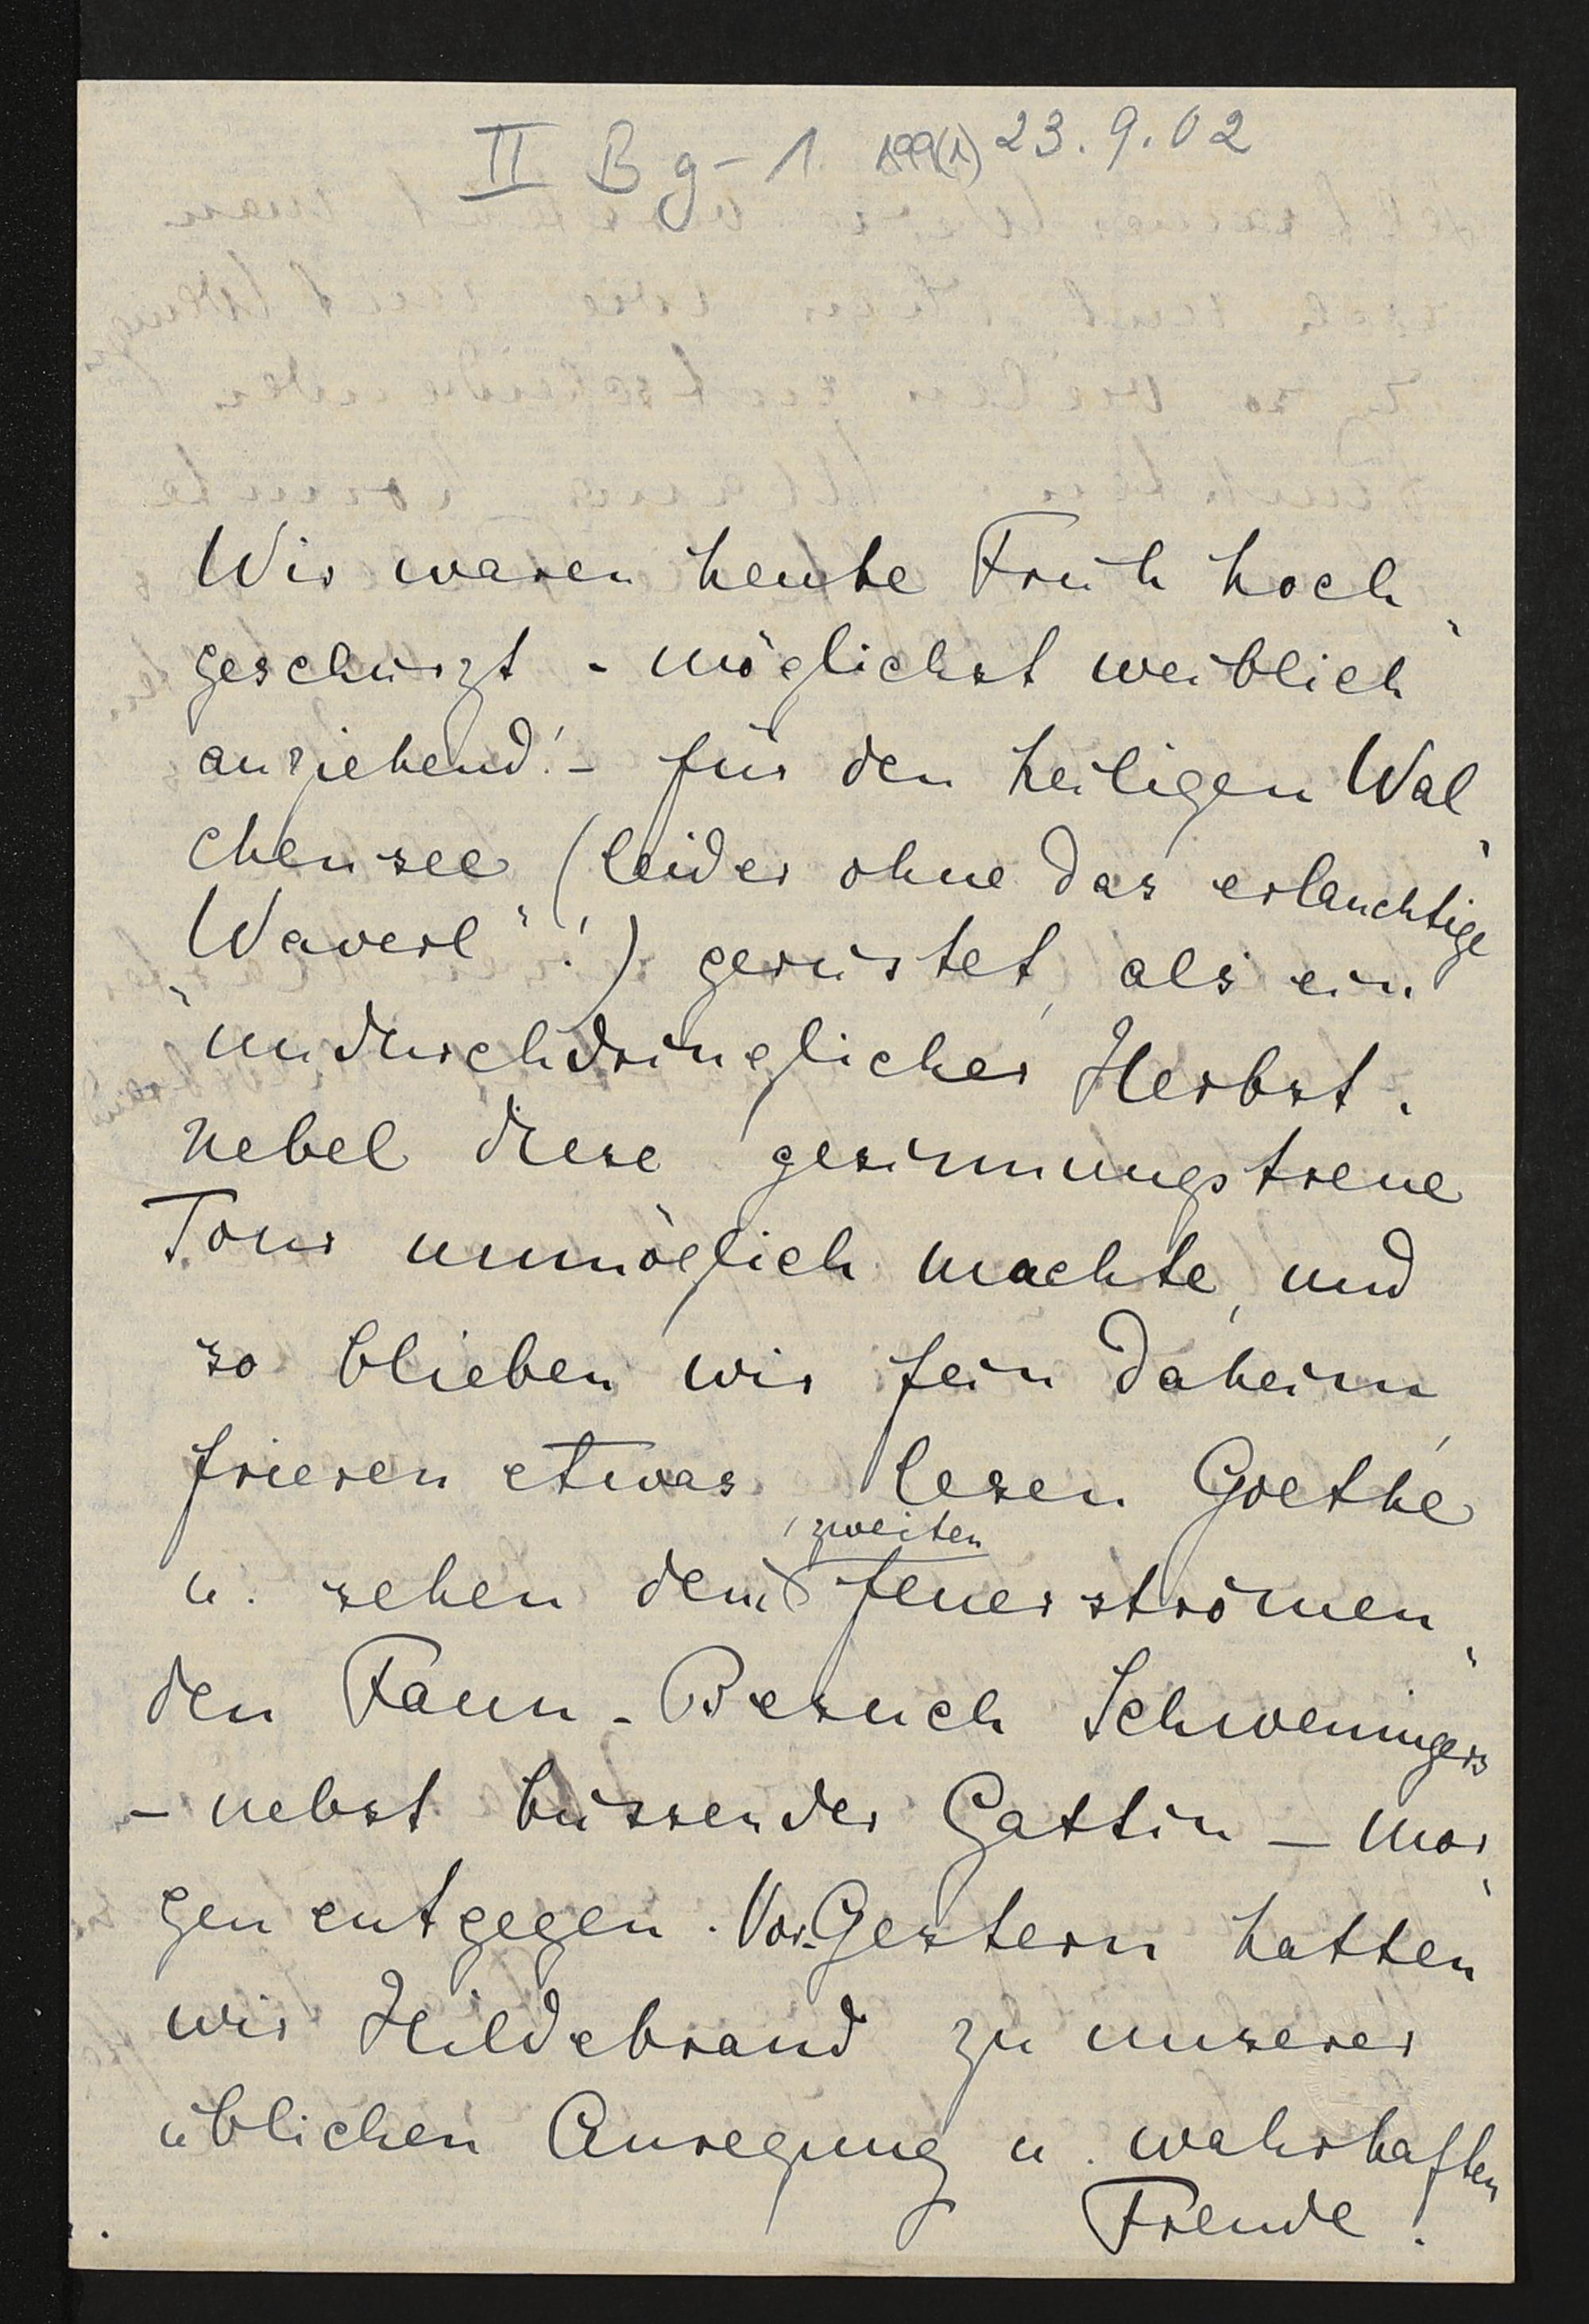 II B g - 1 199(1) 23.9.02
Wir waren heute Früh hoch-
geschürzt - möglichst weiblich
anziehend! - für den heiligen Wal-
chensee (leider ohne das erlauchtige
"Waverl"!) gerüstet, als ein
undurchdringlicher Herbst-
nebel diese gesinnungstreue
Tour unmöglich machte, und
so blieben wir fein daheim,
frieren etwas lesen Goethe
zweiten
u. sehen dem feuerströmen-
den Faun-Besuch Schweningers
- nebst büssender Gattin - mor-
gen entgegen. Vor-Gestern hatten
wir Hildebrand zu unserer
üblichen Anregung u. wahrhaften
Freude!